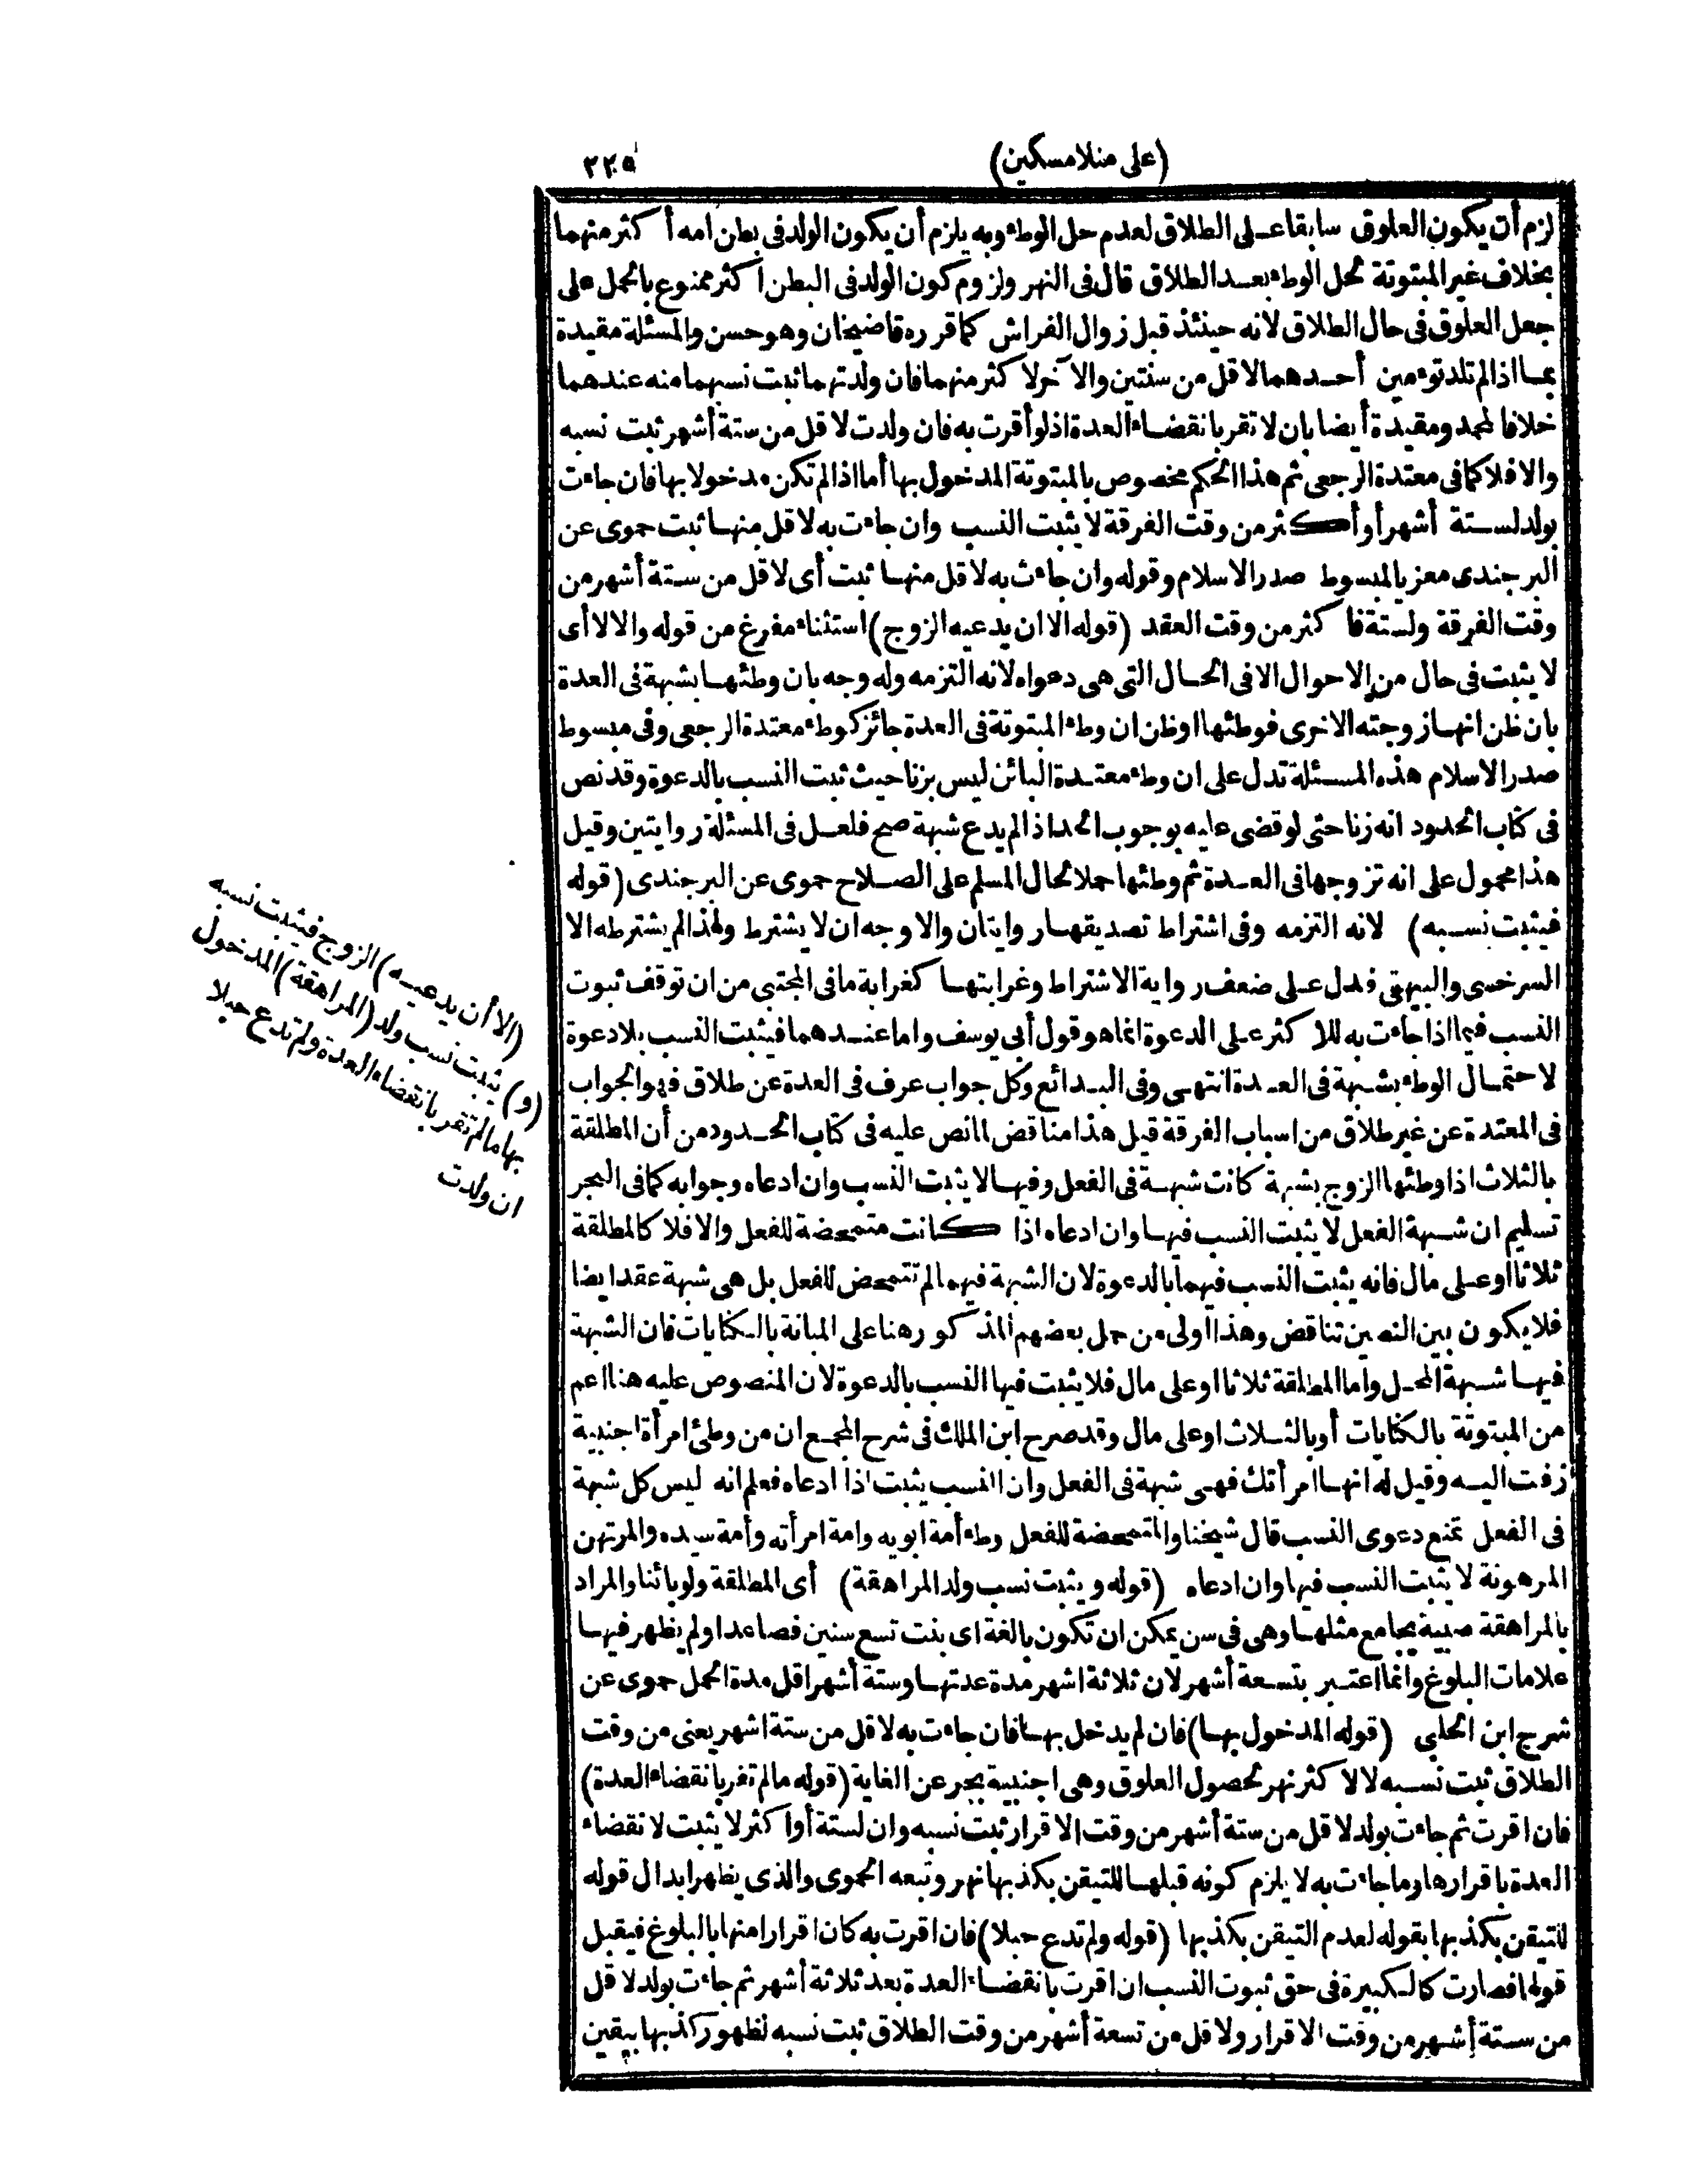 (على منلا مسكين) ٢٢٥
لزم أن يكون العلوق سابقا على الطلاق لعدم حل الوطء وبه يلزم أن يكون الولد فى بطن امه أكثر منهما
بخلاف غير المبتوتة لحل الوطء بعد الطلاق قال فى النهر ولزوم كون الولد فى البطن أكثر ممنوع بالحمل على
جعل العلوق فى حال الطلاق لانه حينئذ قبل زوال الفراش كما قرره قاضيخان وهو حسن والمسئلة مقيدة
بما اذا لم تلد توءمين أحدهما لاقل من سنتين والآخر لا كثر منهما فان ولدتهما ثبت نسبهما منه عندهما
خلافا لمحمد ومقيدة أيضا بان لا تقر بانقضاء العدة اذ لو أقرت به فان ولدت لاقل من ستة أشهر ثبت نسبه
والا فلا كما فى معتدة الرجعى ثم هذا الحكم مخصوص بالمبتوتة المدخول بها أما اذا لم تكن مدخولا بها فان جاءت
بولد لستة أشهر أو أكثر من وقت الفرقة لا يثبت النسب وان جاءت به لاقل منها ثبت حموى عن
البرجندى معزيا لمبسوط صدر الاسلام وقوله وان جاءت به لاقل منها ثبت أى لاقل من ستة أشهر من
وقت الفرقة ولستة فا كثر من وقت العقد (قوله الا ان يدعيه الزوج) استثناء مفرغ من قوله والا لا أى
لا يثبت فى حال من الاحوال الا فى الحال التى هى دعواه لانه التزمه وله وجه بان وطئها بشبهة فى العدة
بان ظن انها زوجته الاخرى فوطئها اوظن ان وطء المبتوتة فى العدة جائز كوطء معتدة الرجعى وفى مبسوط
صدر الاسلام هذه المسئلة تدل على ان وطء معتدة البائن ليس بزنا حيث ثبت النسب بالدعوة وقد نص
فى كتاب الحدود انه زنا حتى لو قضى عليه بوجوب الحد اذا لم يدع شبهة صح فلعل فى المسئلة روايتين وقيل
هذا محمول على انه تزوجها فى العدة ثم وطئها حملا لحال المسلم على الصلاح حموى عن البرجندى (قوله
فيثبت نسبه) لانه التزمه وفى اشتراط تصديقها روايتان والاوجه ان لا يشترط ولهذا لم يشترطه الا
السرخسى والبيهقى فدل على ضعف رواية الاشتراط وغرابتها كغرابة ما فى المجتبى من ان توقف ثبوت
النسب فيما اذا جاءت به للا كثر على الدعوة انما هو قول أبى يوسف واما عندهما فيثبت النسب بلا دعوة
لاحتمال الوطء بشبهة فى العدة انتهى وفى البدائع وكل جواب عرف فى العدة عن طلاق فهو الجواب
فى المعتدة عن غير طلاق من اسباب الفرقة قيل هذا مناقض لما نص عليه فى كتاب الحدود من أن المطلقة
بالثلاث اذا وطئها الزوج بشبهة كانت شبهة فى الفعل وفيها لا يثبت النسب وان ادعاه وجوابه كما فى البحر
تسليم ان شبهة الفعل لا يثبت النسب فيها وان ادعاه اذا كانت متمحضة للفعل والا فلا كالمطلقة
ثلاثا اوعلى مال فانه يثبت النسب فيهما بالدعوة لان الشبهة فيهما لم تتمحض للفعل بل هى شبهة عقد ايضا
فلا يكون بين النصين تناقض وهذا اولى من حمل بعضهم المذكور هنا على المبانة بالكنايات فان الشبهة
فيها شبهة المحل وأما المطلقة ثلاثا اوعلى مال فلا يثبت فيها النسب بالدعوة لان المنصوص عليه هنا اعم
من المبتوتة بالكنايات أو بالثلاث اوعلى مال وقد صرح ابن الملك فى شرح المجمع ان من وطئ امرأة اجنبية
زفت اليه وقيل له انها امرأتك فهى شبهة فى الفعل وان النسب يثبت اذا ادعاه فعلم انه ليس كل شبهة
فى الفعل تمنع دعوى النسب قال شيخنا والمتمحضة للفعل وطء أمة ابويه وامة امرأته وأمة سيده والمرتهن
المرهونة لا يثبت النسب فيها وان ادعاه (قوله ويثبت نسب ولد المراهقة) أى المطلقة ولو بائنا والمراد
بالمراهقة صبية يجامع مثلها وهى فى سن يمكن ان تكون بالغة اى بنت تسع سنين فصاعدا ولم يظهر فيها
علامات البلوغ وانما اعتبر بتسعة أشهر لان ثلاثة اشهر مدة عدتها وستة أشهر اقل مدة الحمل حموى عن
شرح ابن الحلبى (قوله المدخول بها) فان لم يدخل بها فان جاءت به لاقل من ستة اشهر يعنى من وقت
الطلاق ثبت نسبه لا لا كثر نهر لحصول العلوق وهى اجنبية بحر عن الغاية (قوله ما لم تقر بانقضاء العدة)
فان اقرت ثم جاءت بولد لاقل من ستة أشهر من وقت الاقرار ثبت نسبه وان لستة أو اكثر لا يثبت لانقضاء
العدة باقرارها وما جاءت به لا يلزم كونه قبلها للتيقن بكذبها نهر وتبعه الحموى والذى يظهر ابدال قوله
للتيقن بكذبها بقوله لعدم التيقن بكذبها (قوله ولم تدع حبلا) فان اقرت به كان اقرارا منها بالبلوغ فيقبل
قولها فصارت كالكبيرة فى حق ثبوت النسب ان اقرت بانقضاء العدة بعد ثلاثة أشهر ثم جاءت بولد لاقل
من ستة أشهر من وقت الاقرار ولاقل من تسعة أشهر من وقت الطلاق ثبت نسبه لظهور كذبها بيقين
(الا أن يدعيه) الزوج فيثبت نسبه
(و) يثبت نسب ولد (المراهقة) المدخول
بها ما لم تقر بانقضاء العدة ولم تدع حبلا
ان ولدت